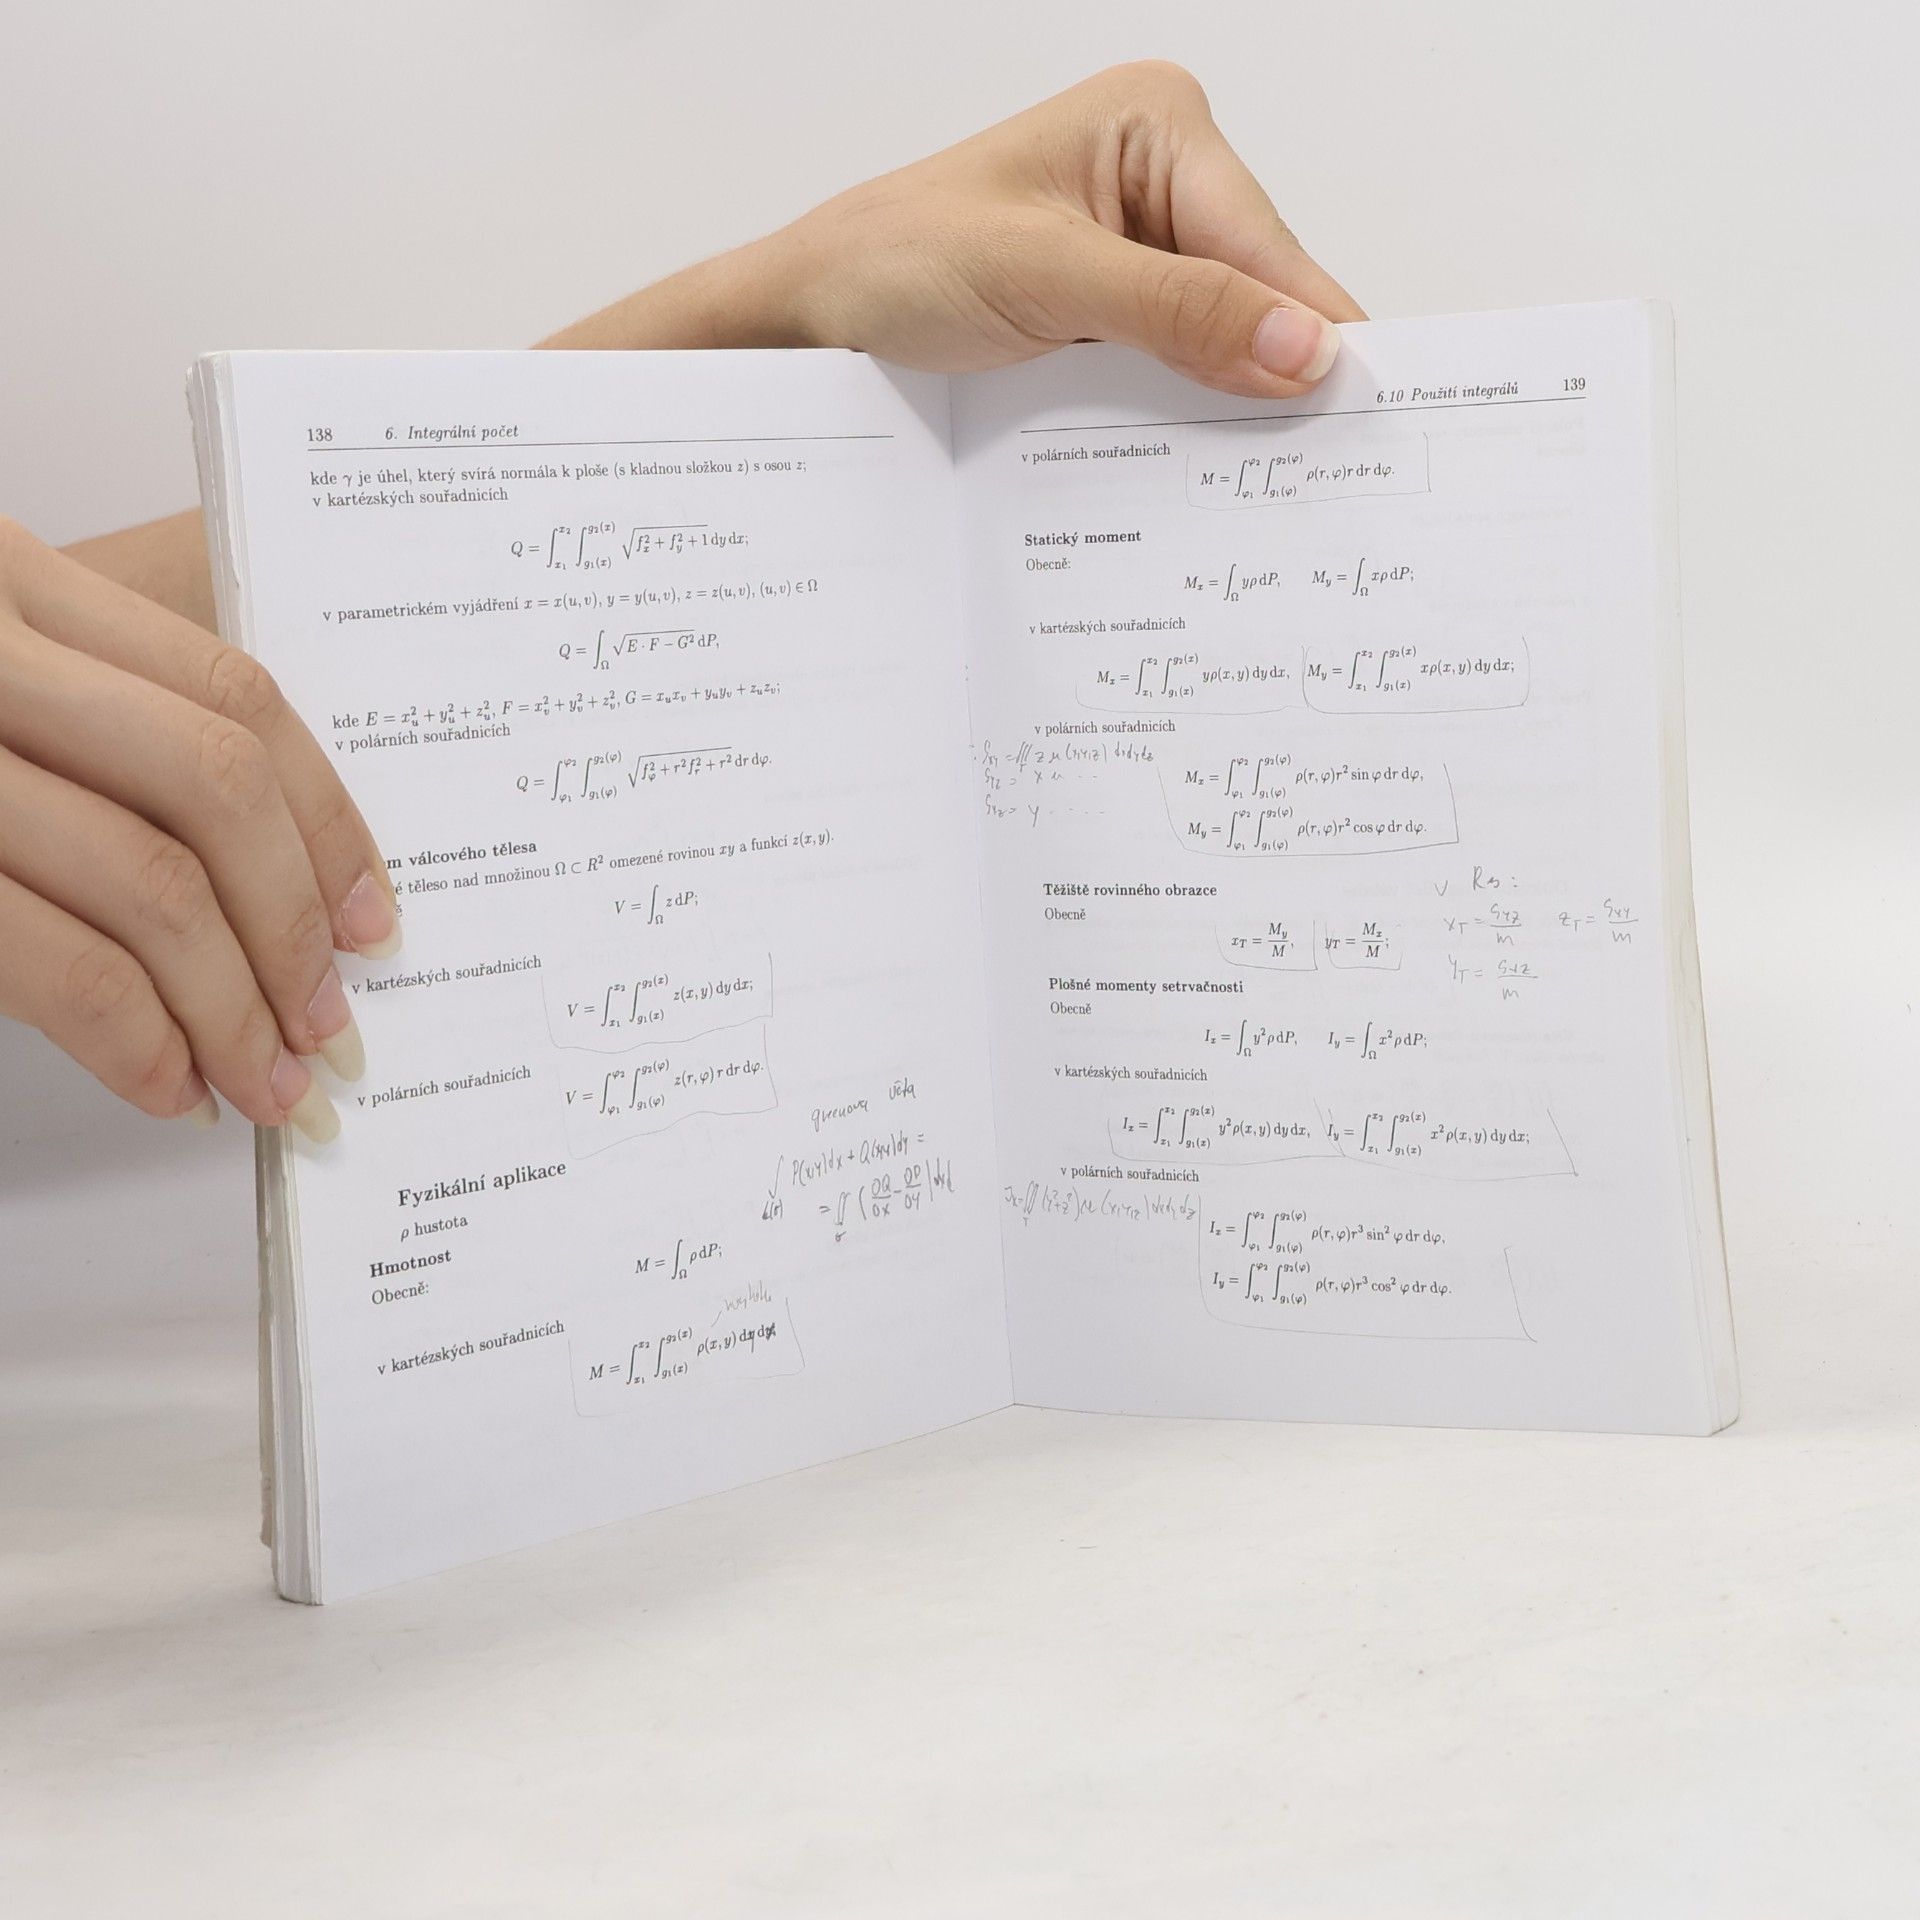 138 6. Integrální počet
kde γ je úhel, který svírá normála k ploše (s kladnou složkou z) s osou z;
v kartézských souřadnicích
Q = ∫_{x₁}^{x₂} ∫_{g₁(x)}^{g₂(x)} √(f_x² + f_y² + 1) dy dx;
v parametrickém vyjádření x = x(u, v), y = y(u, v), z = z(u, v), (u, v) ∈ Ω
Q = ∫_Ω √(E · F − G²) dP,
kde E = x_u² + y_u² + z_u², F = x_v² + y_v² + z_v², G = x_u x_v + y_u y_v + z_u z_v;
v polárních souřadnicích
Q = ∫_{φ₁}^{φ₂} ∫_{g₁(φ)}^{g₂(φ)} √(f_φ² + r² f_r² + r²) dr dφ.
m válcového tělesa
é těleso nad množinou Ω ⊂ R² omezené rovinou xy a funkcí z(x, y).
ě
V = ∫_Ω z dP;
v kartézských souřadnicích
V = ∫_{x₁}^{x₂} ∫_{g₁(x)}^{g₂(x)} z(x, y) dy dx;
v polárních souřadnicích
V = ∫_{φ₁}^{φ₂} ∫_{g₁(φ)}^{g₂(φ)} z(r, φ) r dr dφ.
greenova věta
∫ P(x,y)dx + Q(x,y)dy =
= ∬ (∂Q/∂x − ∂P/∂y)
Fyzikální aplikace
ρ hustota
Hmotnost
Obecně:
M = ∫_Ω ρ dP;
v kartézských souřadnicích
M = ∫_{x₁}^{x₂} ∫_{g₁(x)}^{g₂(x)} ρ(x, y) dy dx
6.10 Použití integrálů 139
v polárních souřadnicích
M = ∫_{φ₁}^{φ₂} ∫_{g₁(φ)}^{g₂(φ)} ρ(r, φ)r dr dφ.
Statický moment
Obecně:
M_x = ∫_Ω yρ dP, M_y = ∫_Ω xρ dP;
v kartézských souřadnicích
M_x = ∫_{x₁}^{x₂} ∫_{g₁(x)}^{g₂(x)} yρ(x, y) dy dx, M_y = ∫_{x₁}^{x₂} ∫_{g₁(x)}^{g₂(x)} xρ(x, y) dy dx;
v polárních souřadnicích
S_xy = ∭_T z μ (x,y,z) dxdydz
S_yz = x μ ...
S_xz = y ....
M_x = ∫_{φ₁}^{φ₂} ∫_{g₁(φ)}^{g₂(φ)} ρ(r, φ)r² sin φ dr dφ,
M_y = ∫_{φ₁}^{φ₂} ∫_{g₁(φ)}^{g₂(φ)} ρ(r, φ)r² cos φ dr dφ.
Těžiště rovinného obrazce
Obecně
x_T = M_y/M, y_T = M_x/M;
x_T = S_yz/m z_T = S_xy/m
y_T = S_xz/m
Plošné momenty setrvačnosti
Obecně
I_x = ∫_Ω y²ρ dP, I_y = ∫_Ω x²ρ dP;
v kartézských souřadnicích
I_x = ∫_{x₁}^{x₂} ∫_{g₁(x)}^{g₂(x)} y²ρ(x, y) dy dx, I_y = ∫_{x₁}^{x₂} ∫_{g₁(x)}^{g₂(x)} x²ρ(x, y) dy dx;
v polárních souřadnicích
J_x = ∭_T (y²+z²) μ (x,y,z) dxdydz
I_x = ∫_{φ₁}^{φ₂} ∫_{g₁(φ)}^{g₂(φ)} ρ(r, φ)r³ sin² φ dr dφ,
I_y = ∫_{φ₁}^{φ₂} ∫_{g₁(φ)}^{g₂(φ)} ρ(r, φ)r³ cos² φ dr dφ.